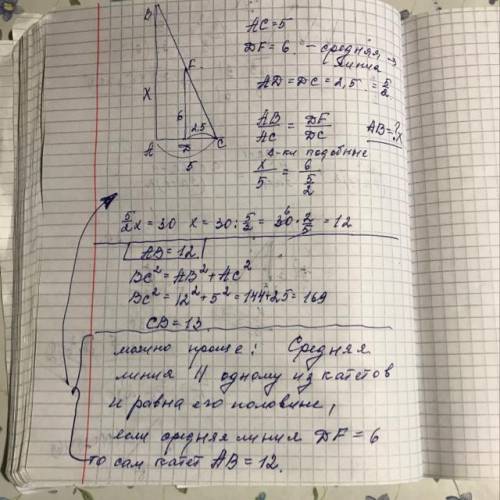 B
AC=5
DF=6 - средняя, →
линия
AD=DC=2,5 = 5/2
F
X
6
2,5
A
D
C
5
AB/AC = DF/DC
AB=?x
Δ-ки подобные
x/5 = 6/(5/2)
5/2x=30 x=30:5/2= 30^6·2/5=12
AB=12
BC²=AB²+AC²
BC²=12²+5²=144+25=169
CB=13
можно проще: Средняя
линия || одному из катетов
и равна его половине,
если средняя линия DF=6
то сам катет AB=12.